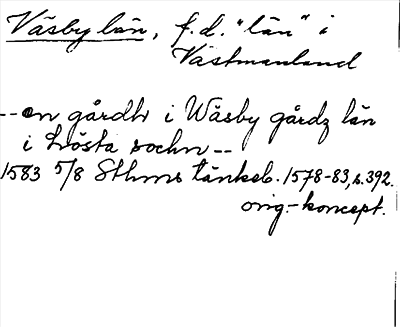 Väsby län, f.d. "län" i
Västmanland
--en gårdh i Wäsby gårdz län
i Lrösta sochn--
1583 5/8 Sthms tänkeb. 1578-83, s. 392.
orig.-koncept.